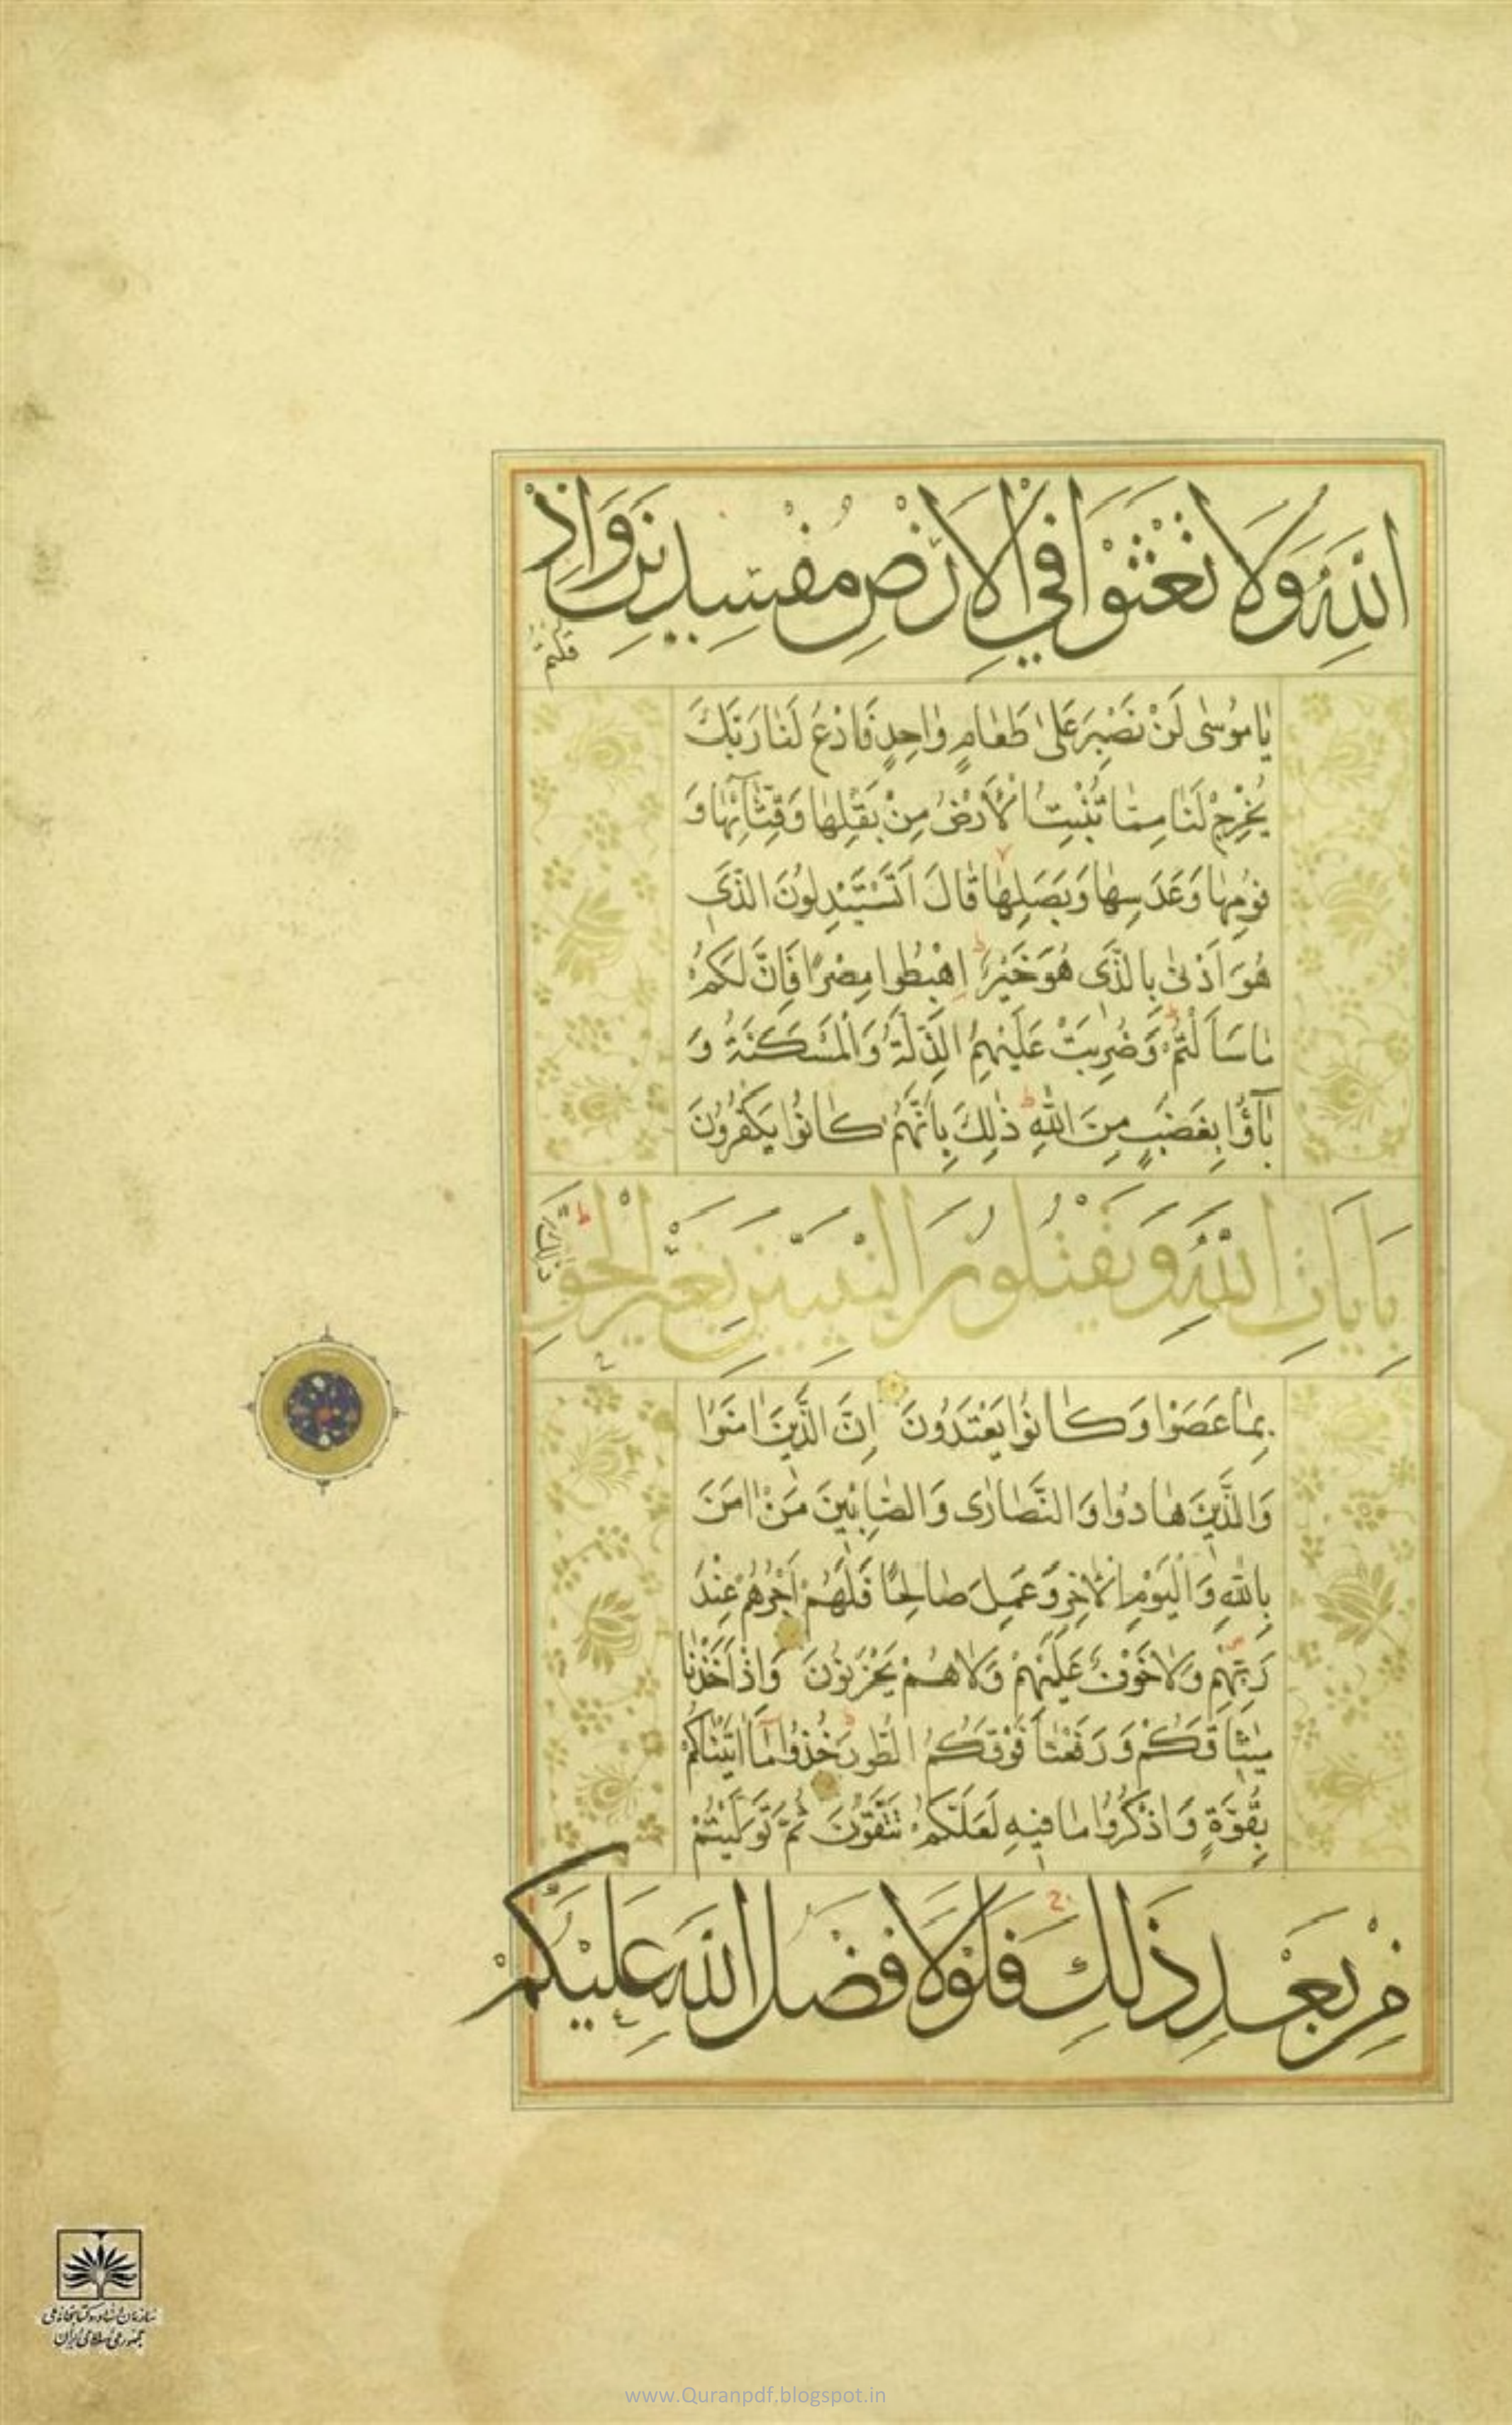 اللَّهِ وَلَا تَعْثَوْا فِي الْأَرْضِ مُفْسِدِينَ وَإِذْ
قُلْتُمْ
يَا مُوسٰى لَنْ نَصْبِرَ عَلٰى طَعَامٍ وَاحِدٍ فَادْعُ لَنَا رَبَّكَ
يُخْرِجْ لَنَا مِمَّا تُنْبِتُ الْأَرْضُ مِنْ بَقْلِهَا وَقِثَّائِهَا وَ
فُومِهَا وَعَدَسِهَا وَبَصَلِهَا قَالَ أَتَسْتَبْدِلُونَ الَّذِي
هُوَ أَدْنٰى بِالَّذِي هُوَ خَيْرٌ اِهْبِطُوا مِصْرًا فَإِنَّ لَكُمْ
مَا سَأَلْتُمْ وَضُرِبَتْ عَلَيْهِمُ الذِّلَّةُ وَالْمَسْكَنَةُ وَ
بَآؤُا بِغَضَبٍ مِنَ اللَّهِ ذٰلِكَ بِأَنَّهُمْ كَانُوا يَكْفُرُونَ
بِآيَاتِ اللَّهِ وَيَقْتُلُونَ النَّبِيِّينَ بِغَيْرِ الْحَقِّ
ذٰلِكَ
بِمَا عَصَوْا وَكَانُوا يَعْتَدُونَ إِنَّ الَّذِينَ اٰمَنُوا
وَالَّذِينَ هَادُوا وَالنَّصَارٰى وَالصَّابِئِينَ مَنْ اٰمَنَ
بِاللَّهِ وَالْيَوْمِ الْاٰخِرِ وَعَمِلَ صَالِحًا فَلَهُمْ أَجْرُهُمْ عِنْدَ
رَبِّهِمْ وَلَا خَوْفٌ عَلَيْهِمْ وَلَا هُمْ يَحْزَنُونَ وَإِذْ أَخَذْنَا
مِيثَاقَكُمْ وَرَفَعْنَا فَوْقَكُمُ الطُّورَ خُذُوا مَا اٰتَيْنَاكُمْ
بِقُوَّةٍ وَاذْكُرُوا مَا فِيهِ لَعَلَّكُمْ تَتَّقُونَ ثُمَّ تَوَلَّيْتُمْ
مِنْ بَعْدِ ذٰلِكَ فَلَوْلَا فَضْلُ اللَّهِ عَلَيْكُمْ
سازمان اسناد و کتابخانه ملی
جمهوری اسلامی ایران
www.Quranpdf.blogspot.in